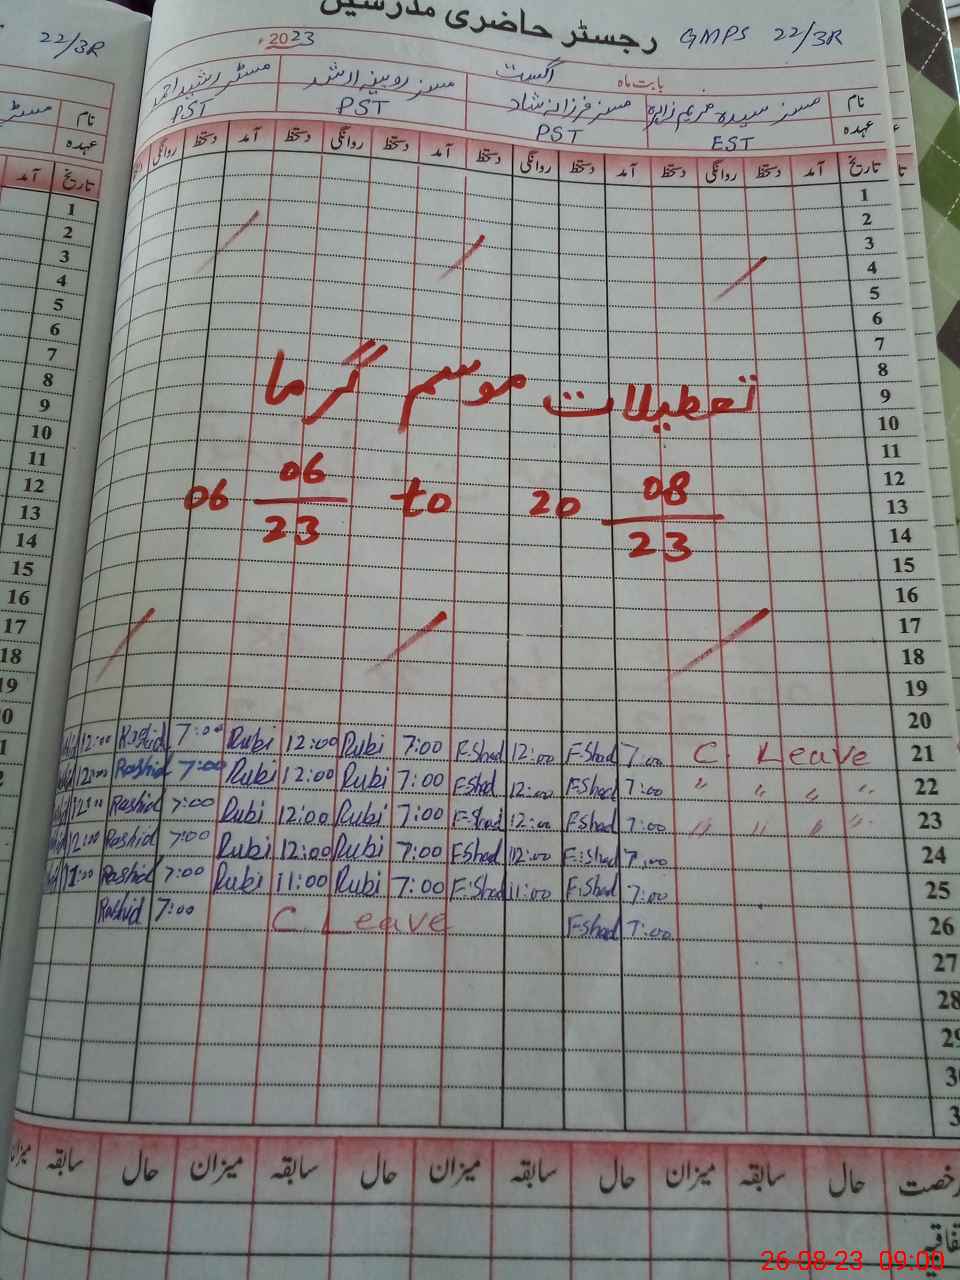 رجسٹر حاضری مدرسین GMPS 22/3R
22/3R
2023
بابت ماہ اگست
نام مسز سیدہ مریم زاہرہ مسز فرزانہ شاد مسز روبینہ ارشد مسٹر رشید احمد
عہدہ EST PST PST PST
تاریخ آمد دستخط روانگی دستخط آمد دستخط روانگی دستخط آمد دستخط روانگی دستخط آمد دستخط روانگی
نام
عہدہ
تاریخ آمد
1
2
3
4
5
6
7
8
9
10
11
12
13
14
15
16
17
18
19
20
تعطیلات موسم گرما
06 06/23 to 20 08/23
12:00 Rashid 7:00 Rubi 12:00 Rubi 7:00 F.Shad 12:00 F.Shad 7:00 C. Leave 21
12:00 Rashid 7:00 Rubi 12:00 Rubi 7:00 F.Shad 12:00 F.Shad 7:00 " " " " 22
12:00 Rashid 7:00 Rubi 12:00 Rubi 7:00 F.Shad 12:00 F.Shad 7:00 " " " " 23
12:00 Rashid 7:00 Rubi 12:00 Rubi 7:00 F.Shad 12:00 F.Shad 7:00 24
11:00 Rashid 7:00 Rubi 11:00 Rubi 7:00 F.Shad 11:00 F.Shad 7:00 25
Rashid 7:00 C. Leave F.Shad 7:00 26
27
28
29
1
2
3
4
5
6
7
8
9
10
11
12
13
14
15
16
17
18
19
رخصت حال سابقہ میزان حال سابقہ میزان حال سابقہ میزان حال سابقہ میزان
26-08-23 09:00